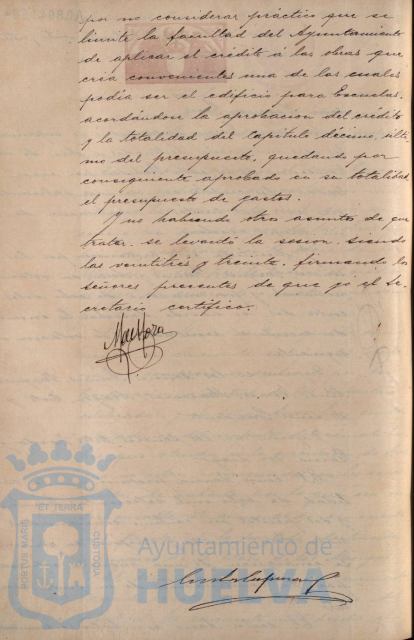 por no considerar práctico que se
limite la facultad del Ayuntamiento
de aplicar el crédito á las obras que
cria convenientes una de las cuales
podia ser el edificio para Escuelas,
acordándose la aprobacion del crédito
y la totalidad del Capítulo décimo, últi-
mo del presupuesto, quedando por
consiguiente aprobado en su totalidad
el presupuesto de gastos.
Y no habiendo otros asuntos de que
tratar, se levantó la sesion, siendo
las veintitrés y treinta, firmando los
señores presentes de que yo el Se-
cretario certifico.
ET TERRA
PORTUS MARIS
CUSTODIA
Ayuntamiento de
HUELVA